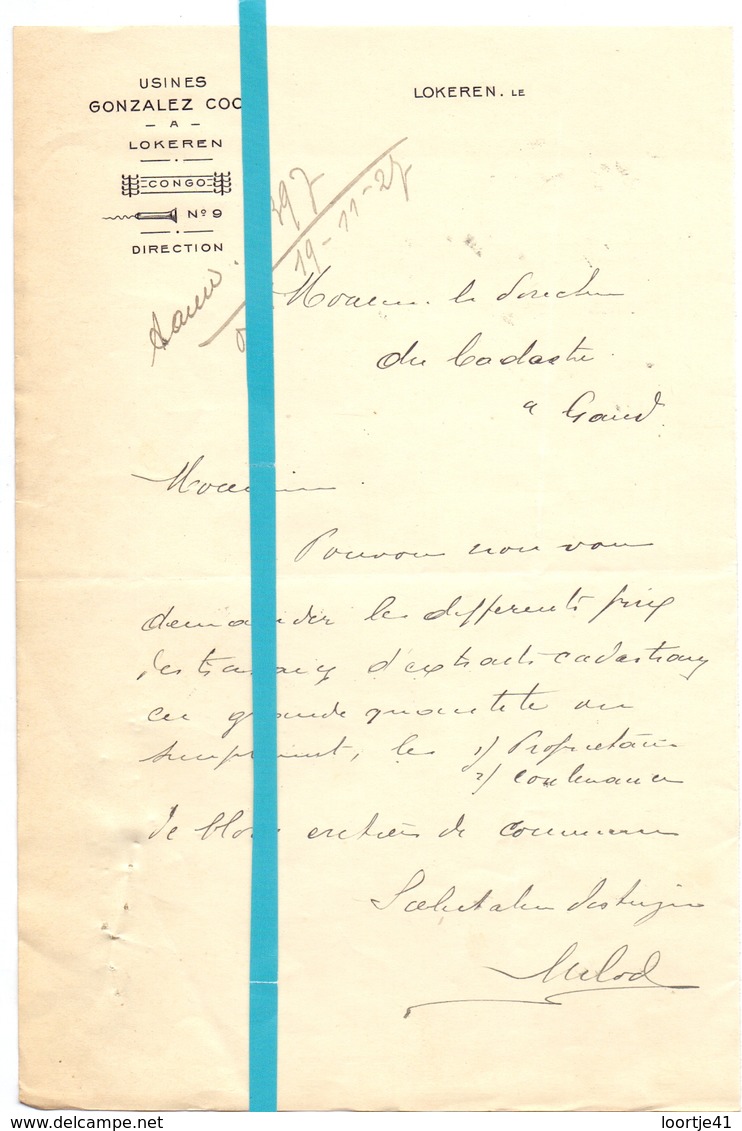 USINES
GONZALEZ COC
- A -
LOKEREN
CONGO
Nº 9
DIRECTION
LOKEREN. LE
397
19-11-27
Monsieur le Directeur
du Cadastre
a Gand
Monsieur
Pouvons nous vous
demander les differents prix
des travaux d'extraits cadastraux
en grande quantite ou
simplement, les 1) Proprietaires
2) contenances
de blocs entiers de communes
Salutations distinguées
www.delcampe.net
loortje41